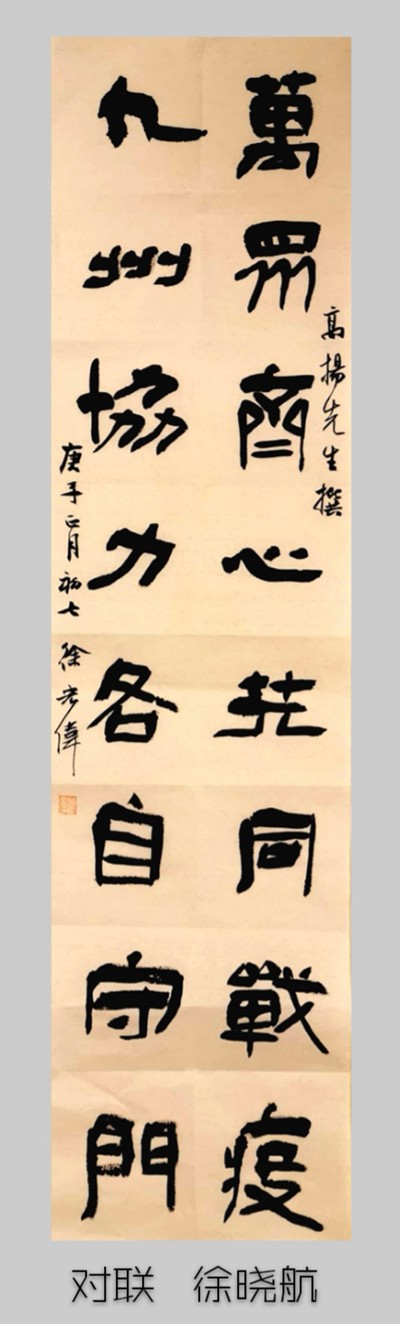 萬眾齊心共同戰疫
高揚先生撰
九州協力各自守門
庚子正月初七 徐宏偉
对联 徐晓航